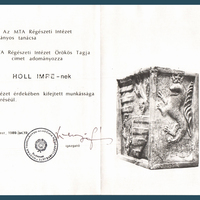 Az MTA Régészeti Intézet
ányos tanácsa
A Régészeti Intézet Örökös Tagja
címet adományozza
HOLL IMRE-nek
zet érdekében kifejtett munkássága
réséül.
igazgató